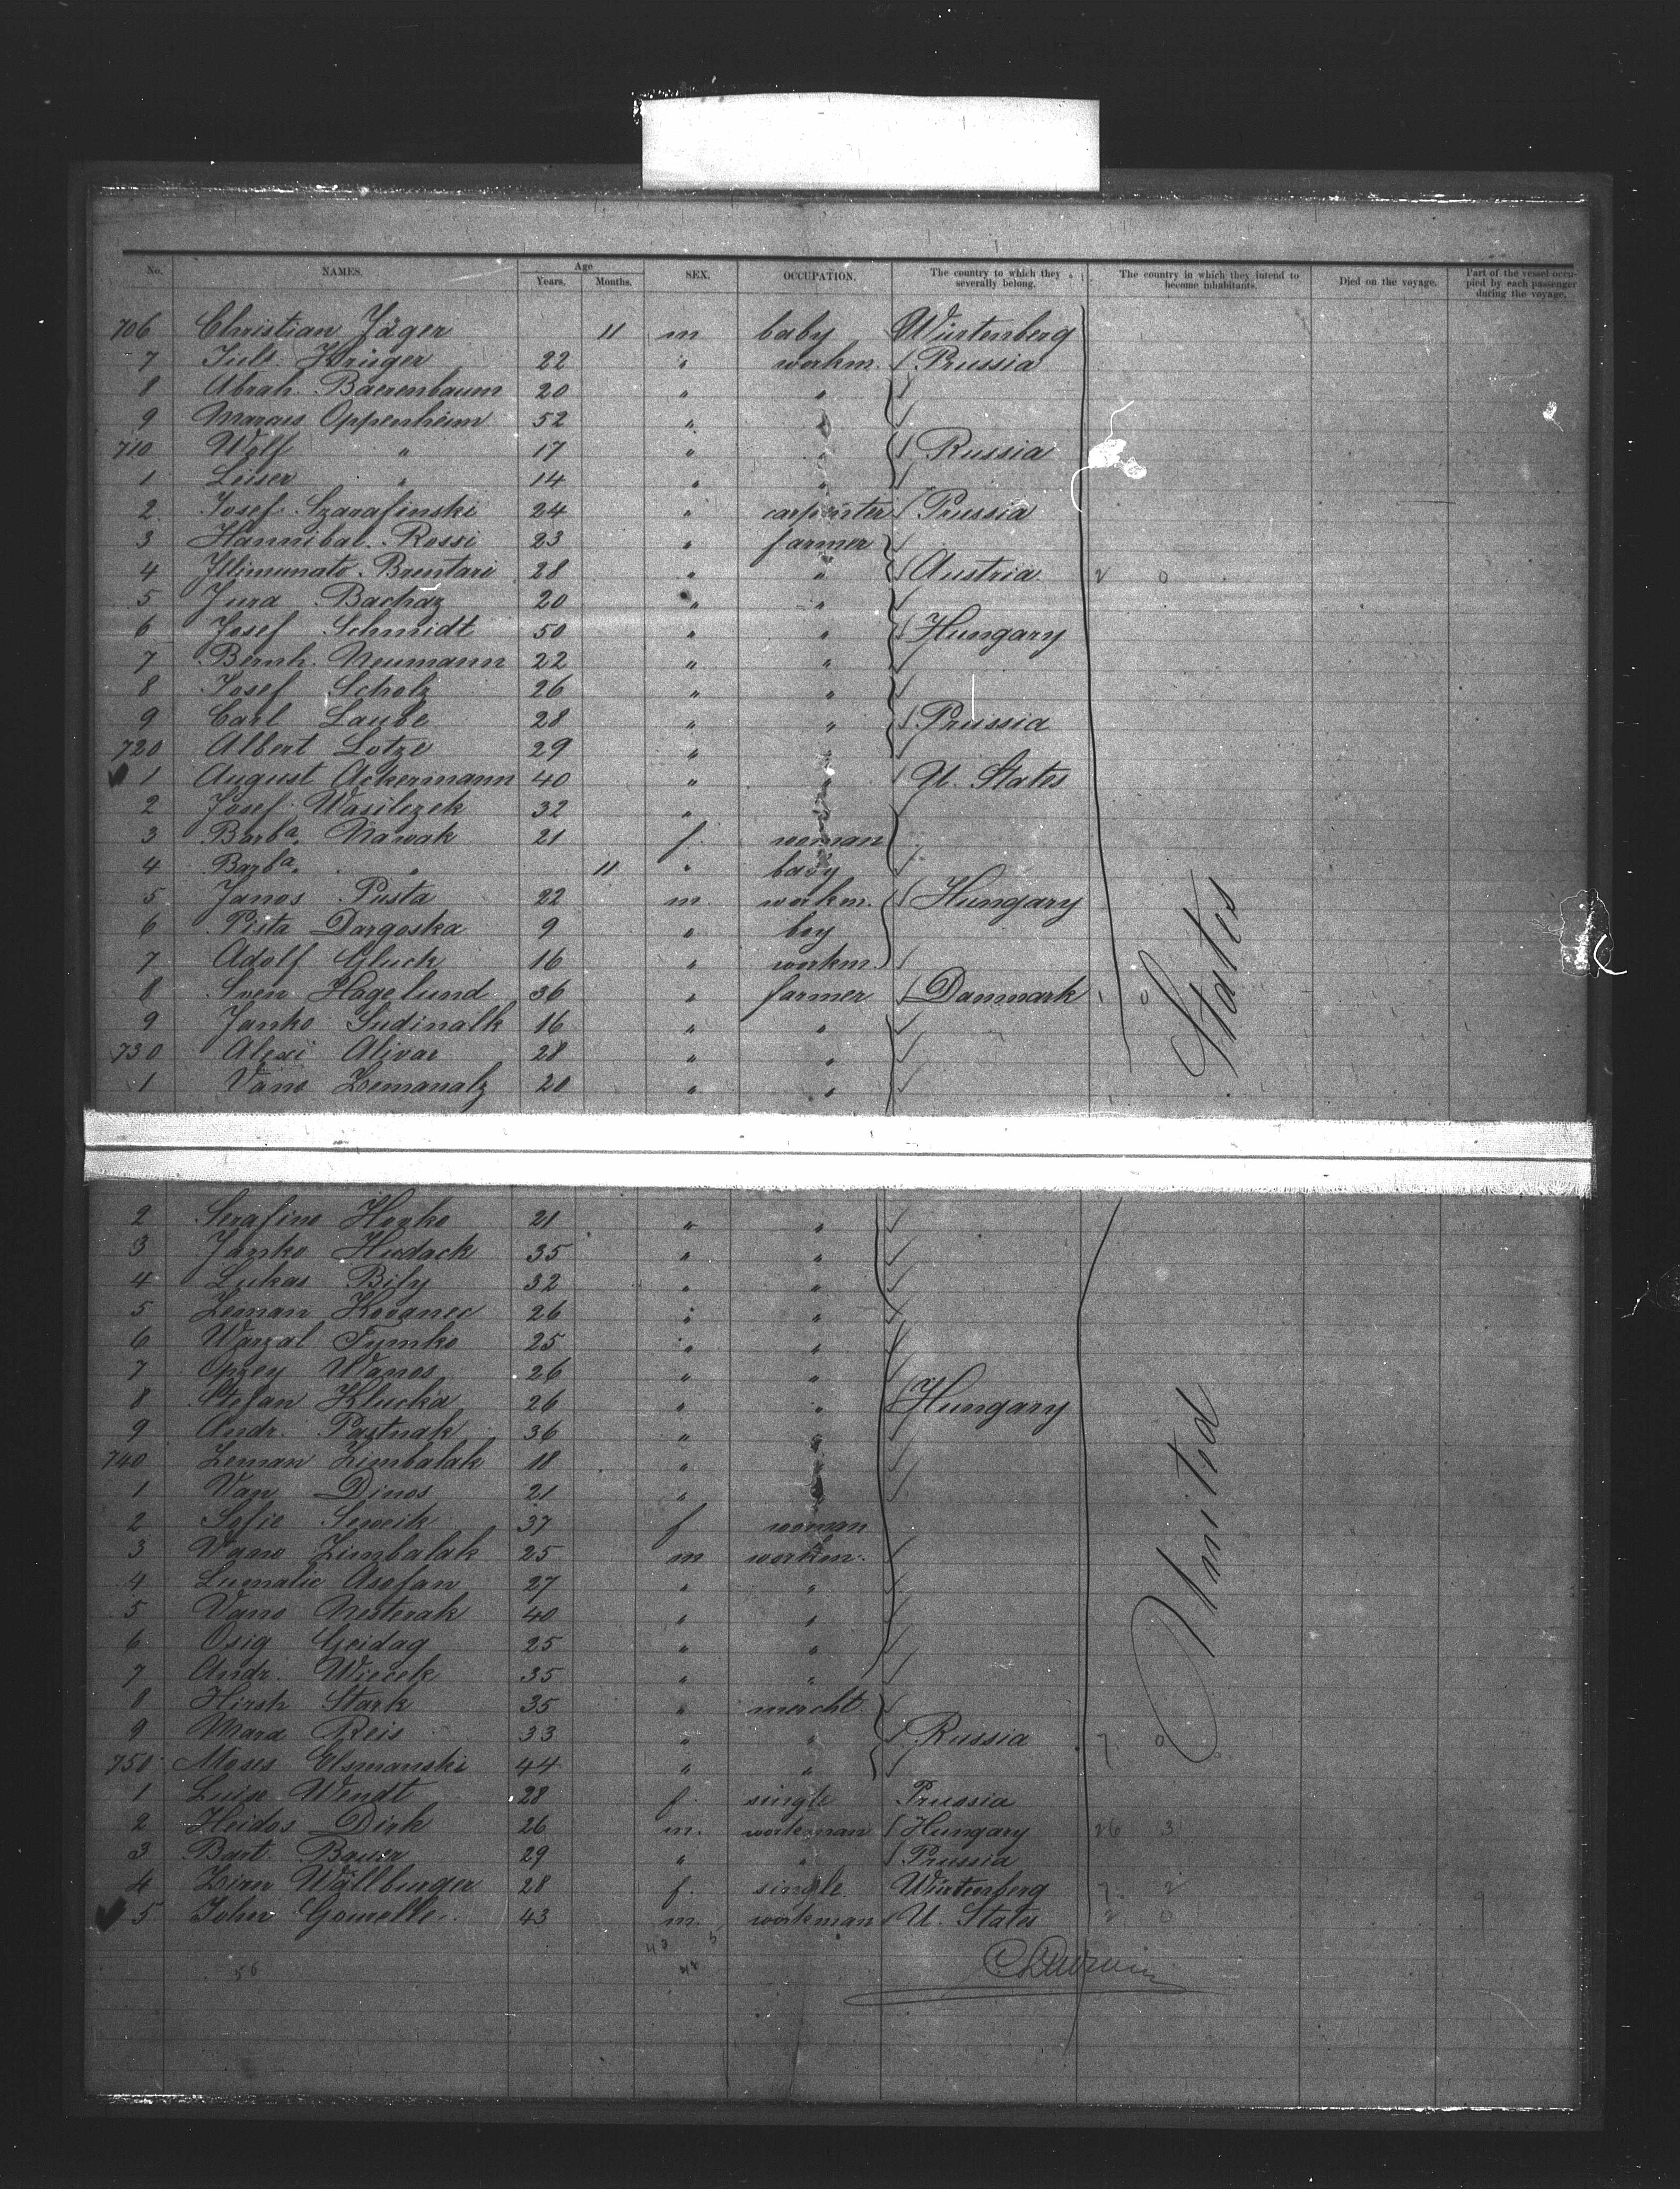 No. NAMES. Age Years. Months. SEX. OCCUPATION. The country to which they severally belong. The country in which they intend to become inhabitants. Died on the voyage. Part of the vessel occupied by each passenger during the voyage.
706 Christian Jäger 11 m baby Würtenberg
7 Juls. Krüger 22 " workm. Prussia
8 Abrah. Baerenbaum 20 " "
9 Marcus Oppenheim 52 " "
710 Wolf " 17 " " Russia
1 Leiser " 14 " "
2 Josef Szarafinski 24 " carpenter Prussia
3 Hannibal Rossi 23 " farmer
4 Illimunato Brentari 28 " " Austria 2 0
5 Jura Bachaz 20 " "
6 Josef Schmidt 50 " " Hungary
7 Bernh. Neumann 22 " "
8 Josef Scholz 26 " "
9 Carl Laube 28 " " Prussia
720 Albert Lotze 29 " "
1 August Ackermann 40 " " U. States
2 Josef Wasilezek 32 " "
3 Barba. Nawak 21 f. woman
4 Barba. " 11 " baby
5 Janos Pusta 22 m. workm. Hungary
6 Pista Dargoska 9 " boy
7 Adolf Gluck 16 " workm.
8 Sven Hagelund 36 " farmer Danmark 1 0
9 Janko Sudinalk 16 " "
730 Alexi Alivar 28 " "
1 Vano Zemanalz 20 " "
2 Serafino Honko 21 " "
3 Janko Hudack 35 " "
4 Lukas Bily 32 " "
5 Zeman Kovanec 26 " "
6 Warzal Tymko 25 " "
7 Opzey Wanos 26 " "
8 Stefan Klucka 26 " " Hungary
9 Andr. Pastnak 36 " "
740 Zeman Zimbalak 18 " "
1 Van Dinos 21 " "
2 Sofie Seweik 37 f woman
3 Vano Zimbalak 25 m workm.
4 Lumalic Asofan 27 " "
5 Vano Nesterak 40 " "
6 Osig Geidag 25 " "
7 Andr. Wiecek 35 " "
8 Hirsh Stark 35 " mercht.
9 Mara Reis 33 " " Russia 7. 0
750 Moses Elsmanski 44 " "
1 Luise Wendt 28 f. single Prussia
2 Heidos Dirk 26 m. workman Hungary 26 3
3 Bart. Bauer 29 " " Prussia
4 Zirn Wällburger 28 f. single Würtenberg 7. 2
5 John Gomelle. 43 m. workman U. States 2 0
United States